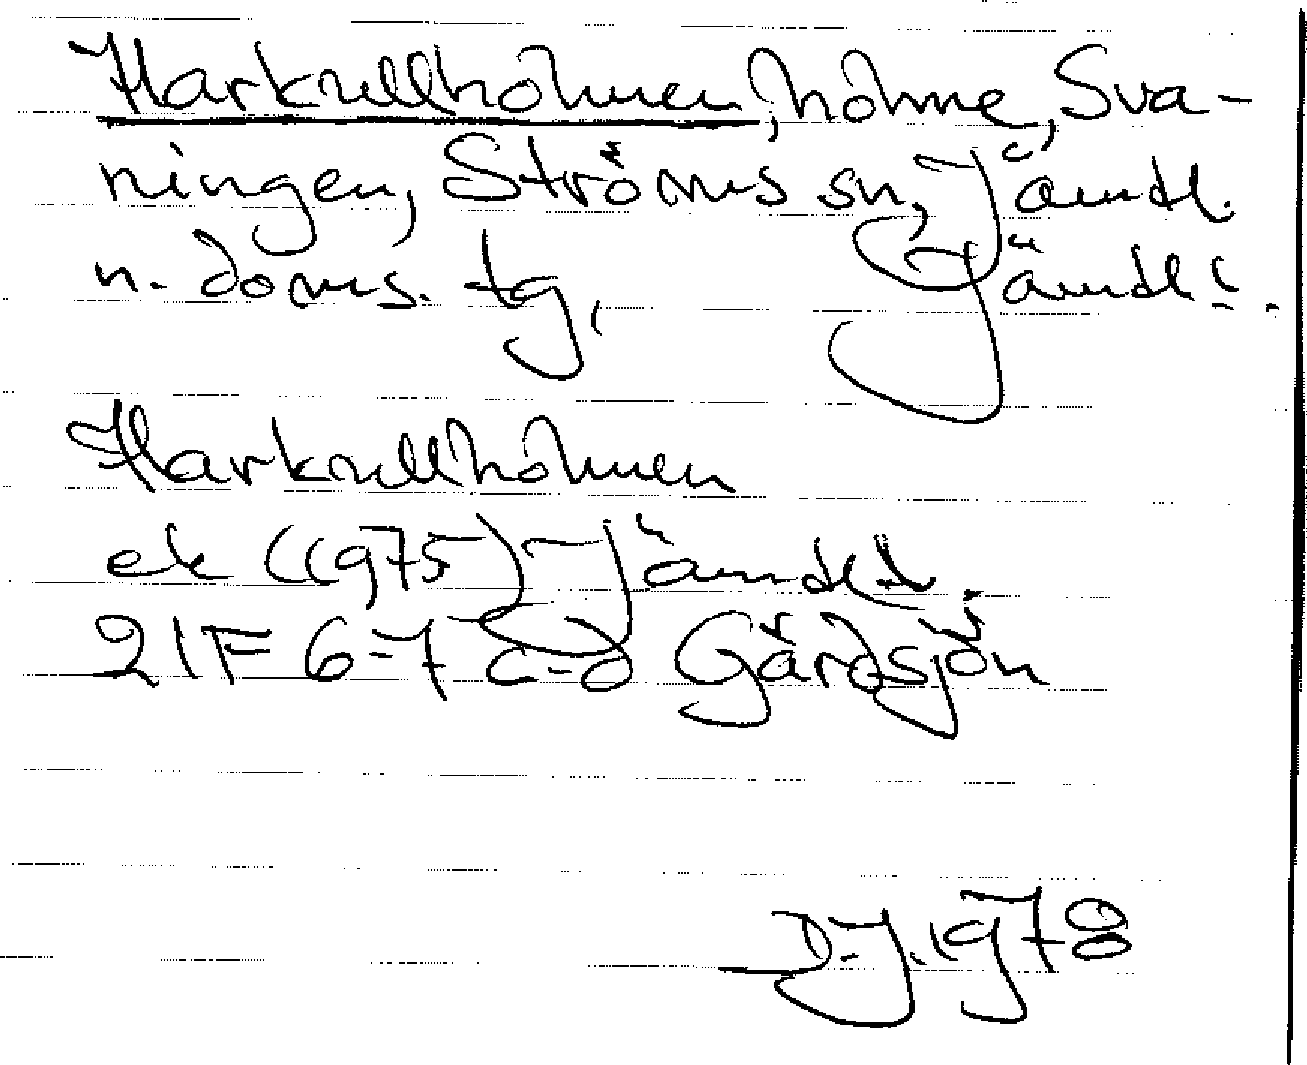 Harkrullholmen, holme, Sva-
ningen, Ströms sn, Jämtl.
n. doms. tg, Jämtl:s.
Harkrullholmen
ek (1975) Jämtl.
21F 6-7 c-d Gårdsjön
D.J. 1978